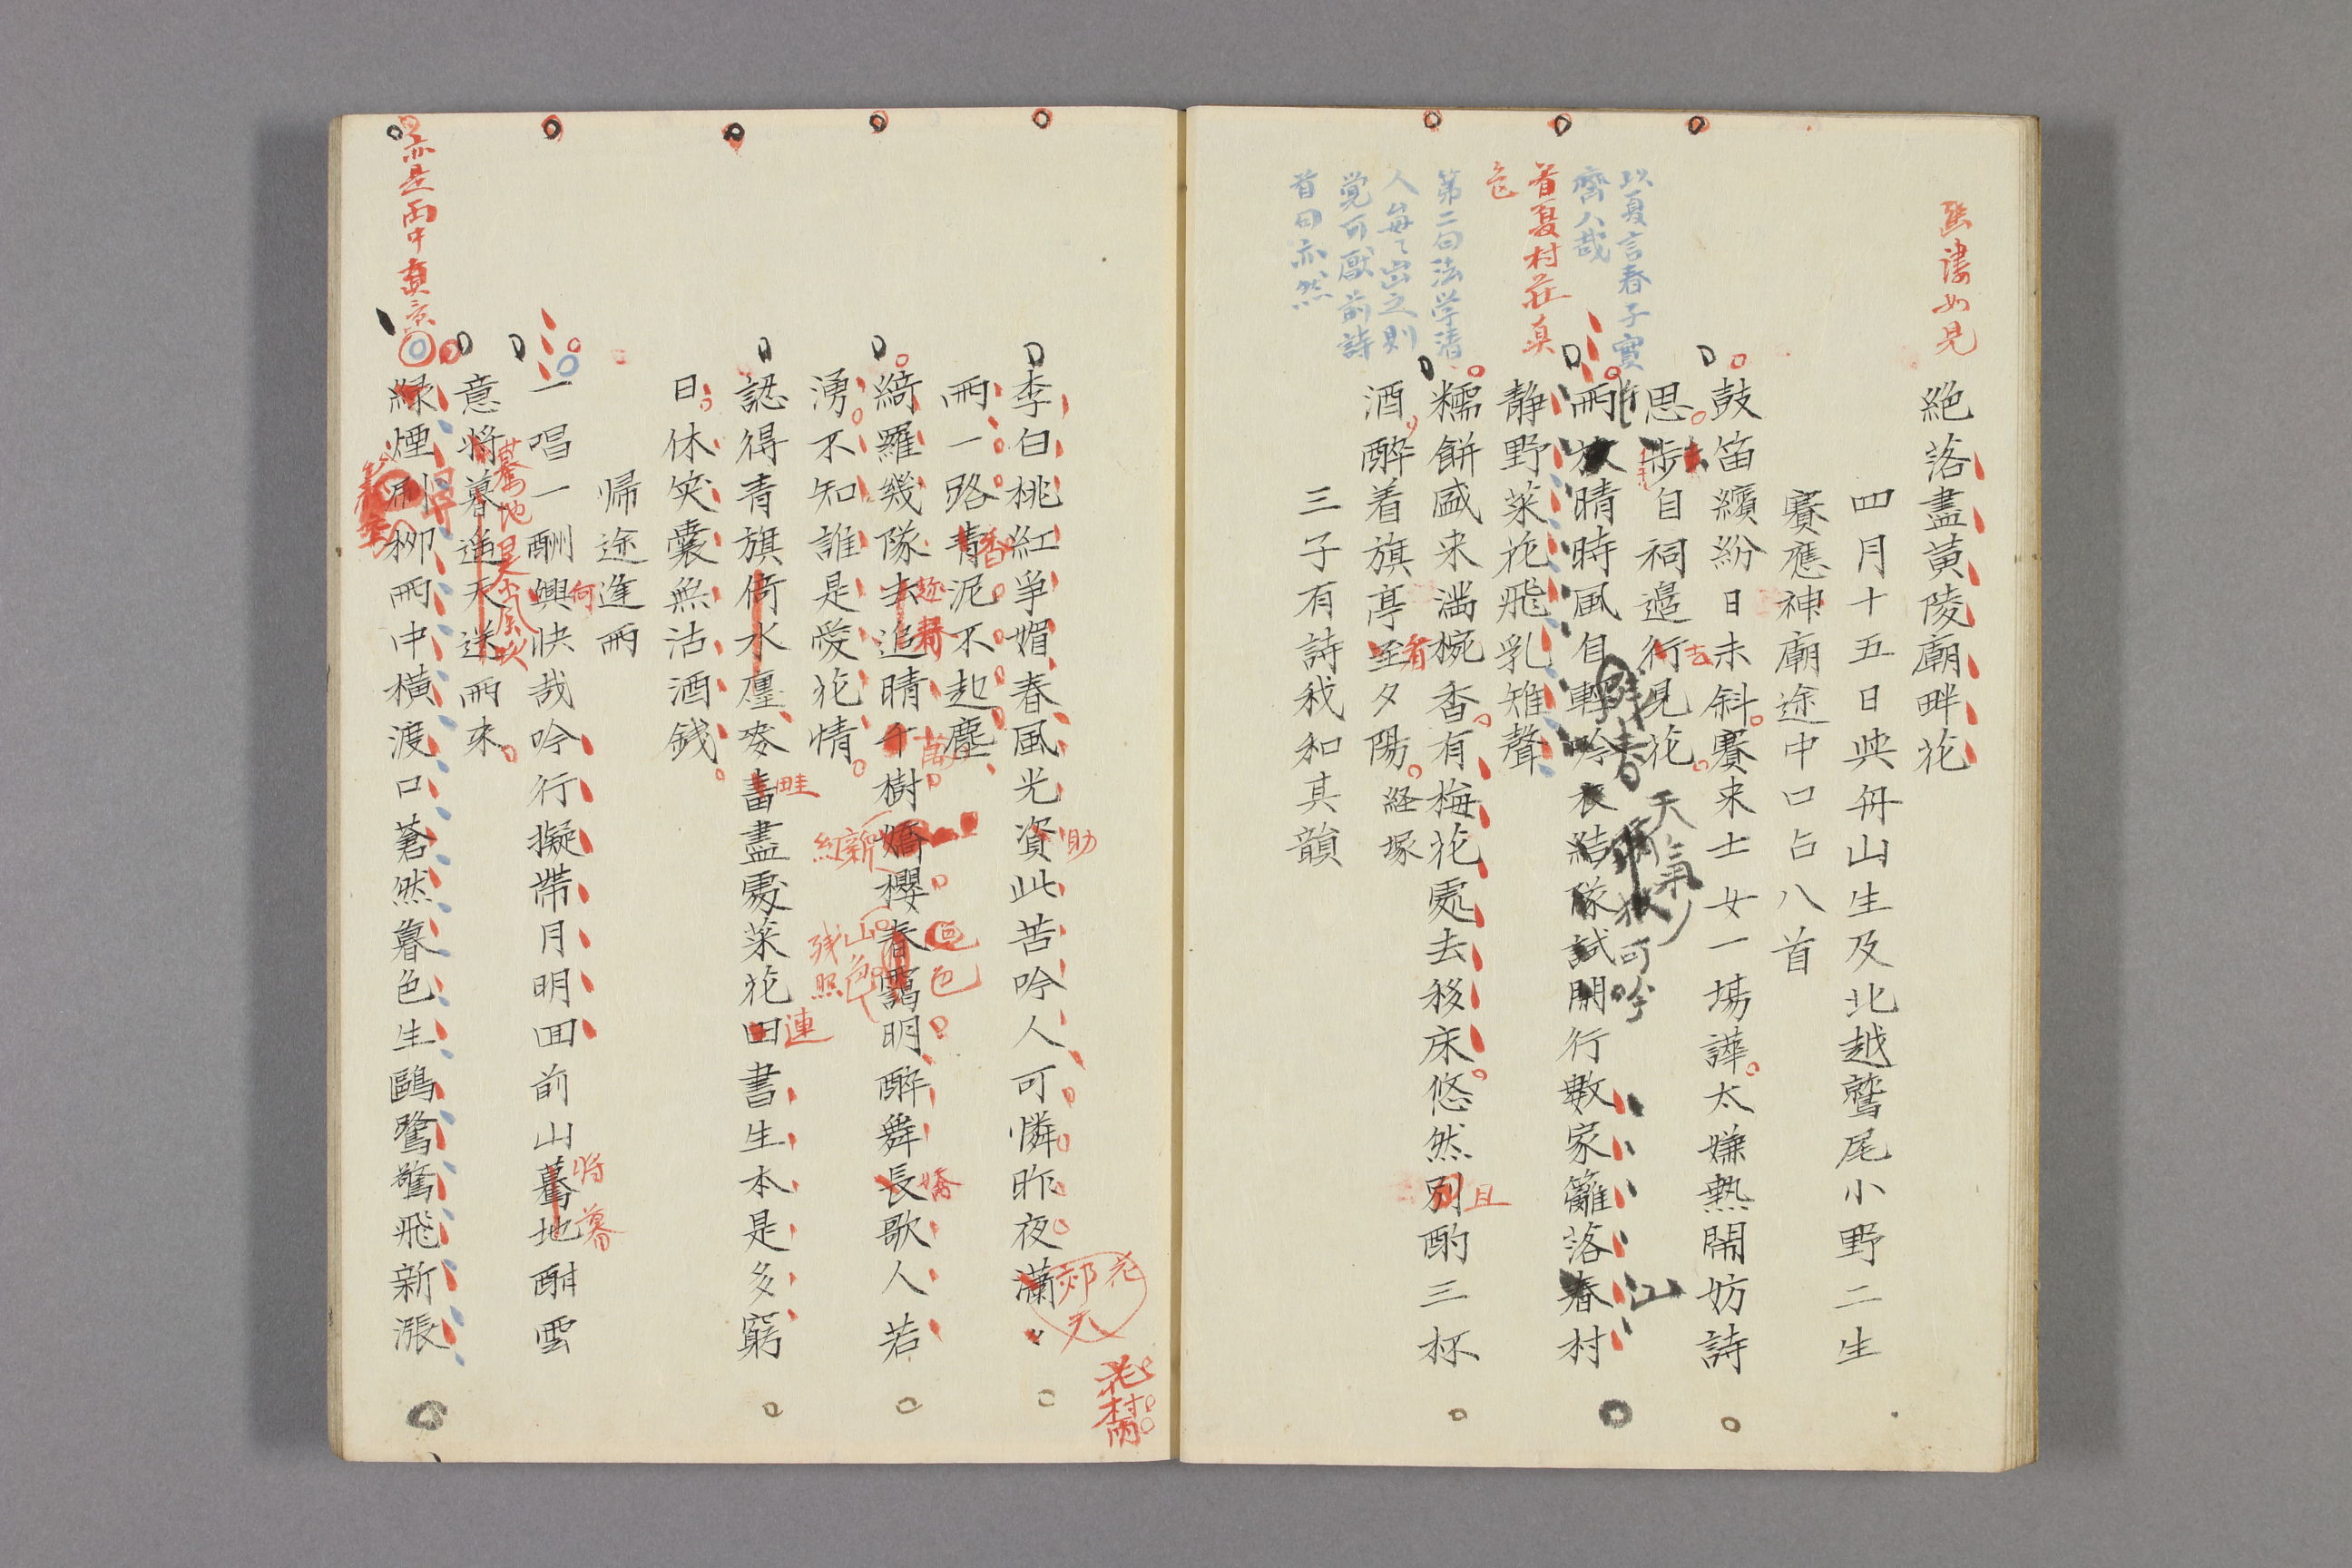 絶落盡黃陵廟畔花
四月十五日與舟山生及北越鷲尾小野二生
賽應神廟途中口占八首
鼓笛繽紛日未斜賽来士女一場譁太嫌熱鬧妨詩
思歩自祠邉行見花
雨放晴時風自輕吟衣結隊試開行數家籬落春村
静野菜花飛乳雉聲
糯餅盛来満椀香有梅花處去移床悠然別酌三杯
酒醉着旗亭至夕陽経塚
三子有詩我和其韻
以夏言春子實
齊人哉
首夏村荘真
色
第二句法学清
人毎〻出之則
覚可厭前詩
首句亦然
去
残春
天氣
可吟
江
首
且
李白桃紅爭媚春風光資此苦吟人可憐昨夜瀟〻
雨一路青泥不起塵
綺羅幾隊去追晴千樹嬌櫻春靄明醉舞長歌人若
湧不知誰是愛花情
認得青旗倚水廛麥畵盡處菜花田書生本是多窮
日休笑嚢無沽酒錢
帰途逢雨
一唱一酬興快哉吟行擬帯月明囬前山驀地酣雲
意將暮追天送雨来
緑煙刷栁雨中横渡口蒼然暮色生鷗鷺驚飛新漲
助
香
花
郊
天
花村雨
趂
萬
色
嬌
新
紅
山色
残照
畦
連
何
将暮
驀地是
亦是雨中真景